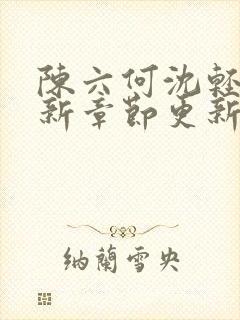 陳六何沈輕
新章節更新
納蘭雪央